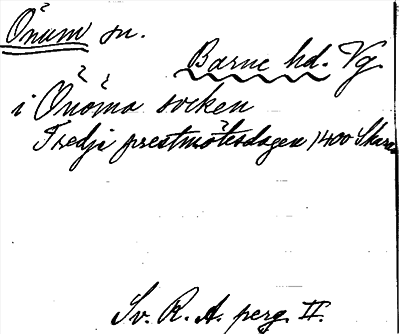 Önum sn.
Barne hd. Vg.
i Önöma socken
Tredji prestmötesdagen 1400 Skara
Sv. R. A. perg. II.